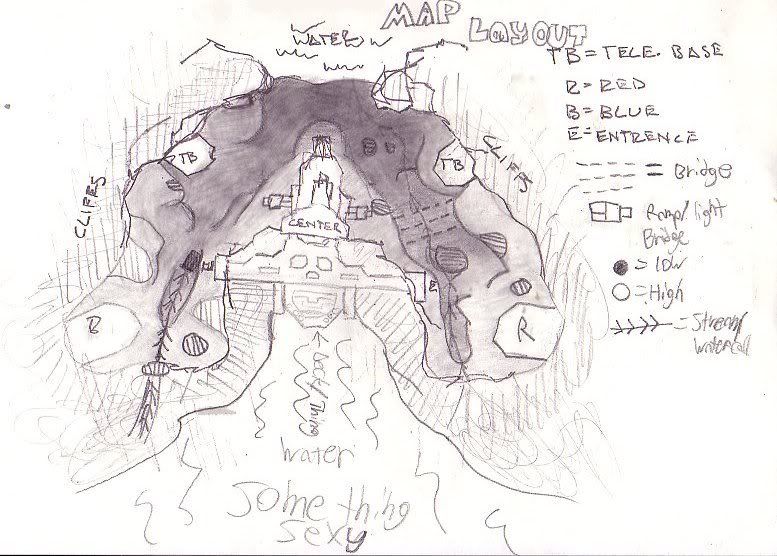 MAP
LAYOUT
WATER
TB = TELE. BASE
R = RED
B = BLUE
E = ENTRENCE
= Bridge
Ramp/light
Bridge
= low
= High
= Stream/
CLIFFS
CLIFFS
TB
TB
CENTER
E
B
R
Thing
water
Some thing
sexy